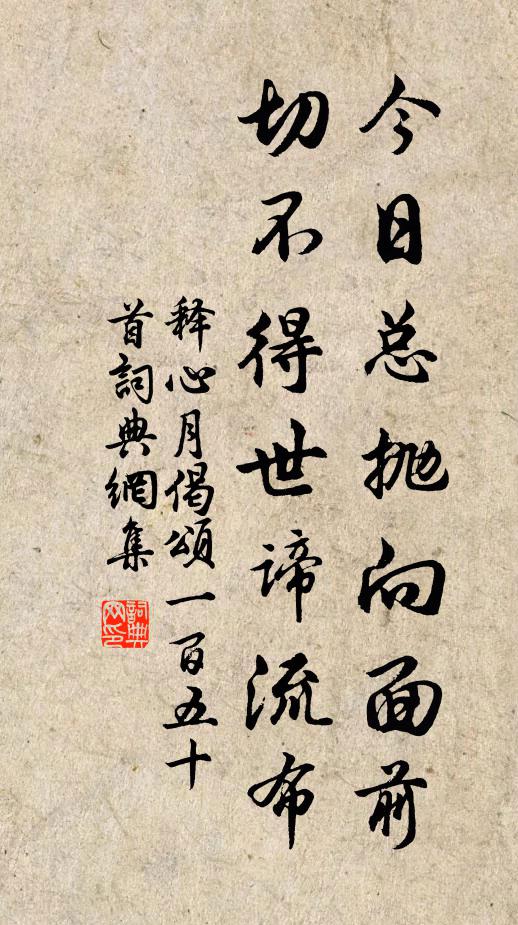 今日总抛向面前
切不得世谛流布
释心月偈頌一百五十
首詞典網集
詞典
网印